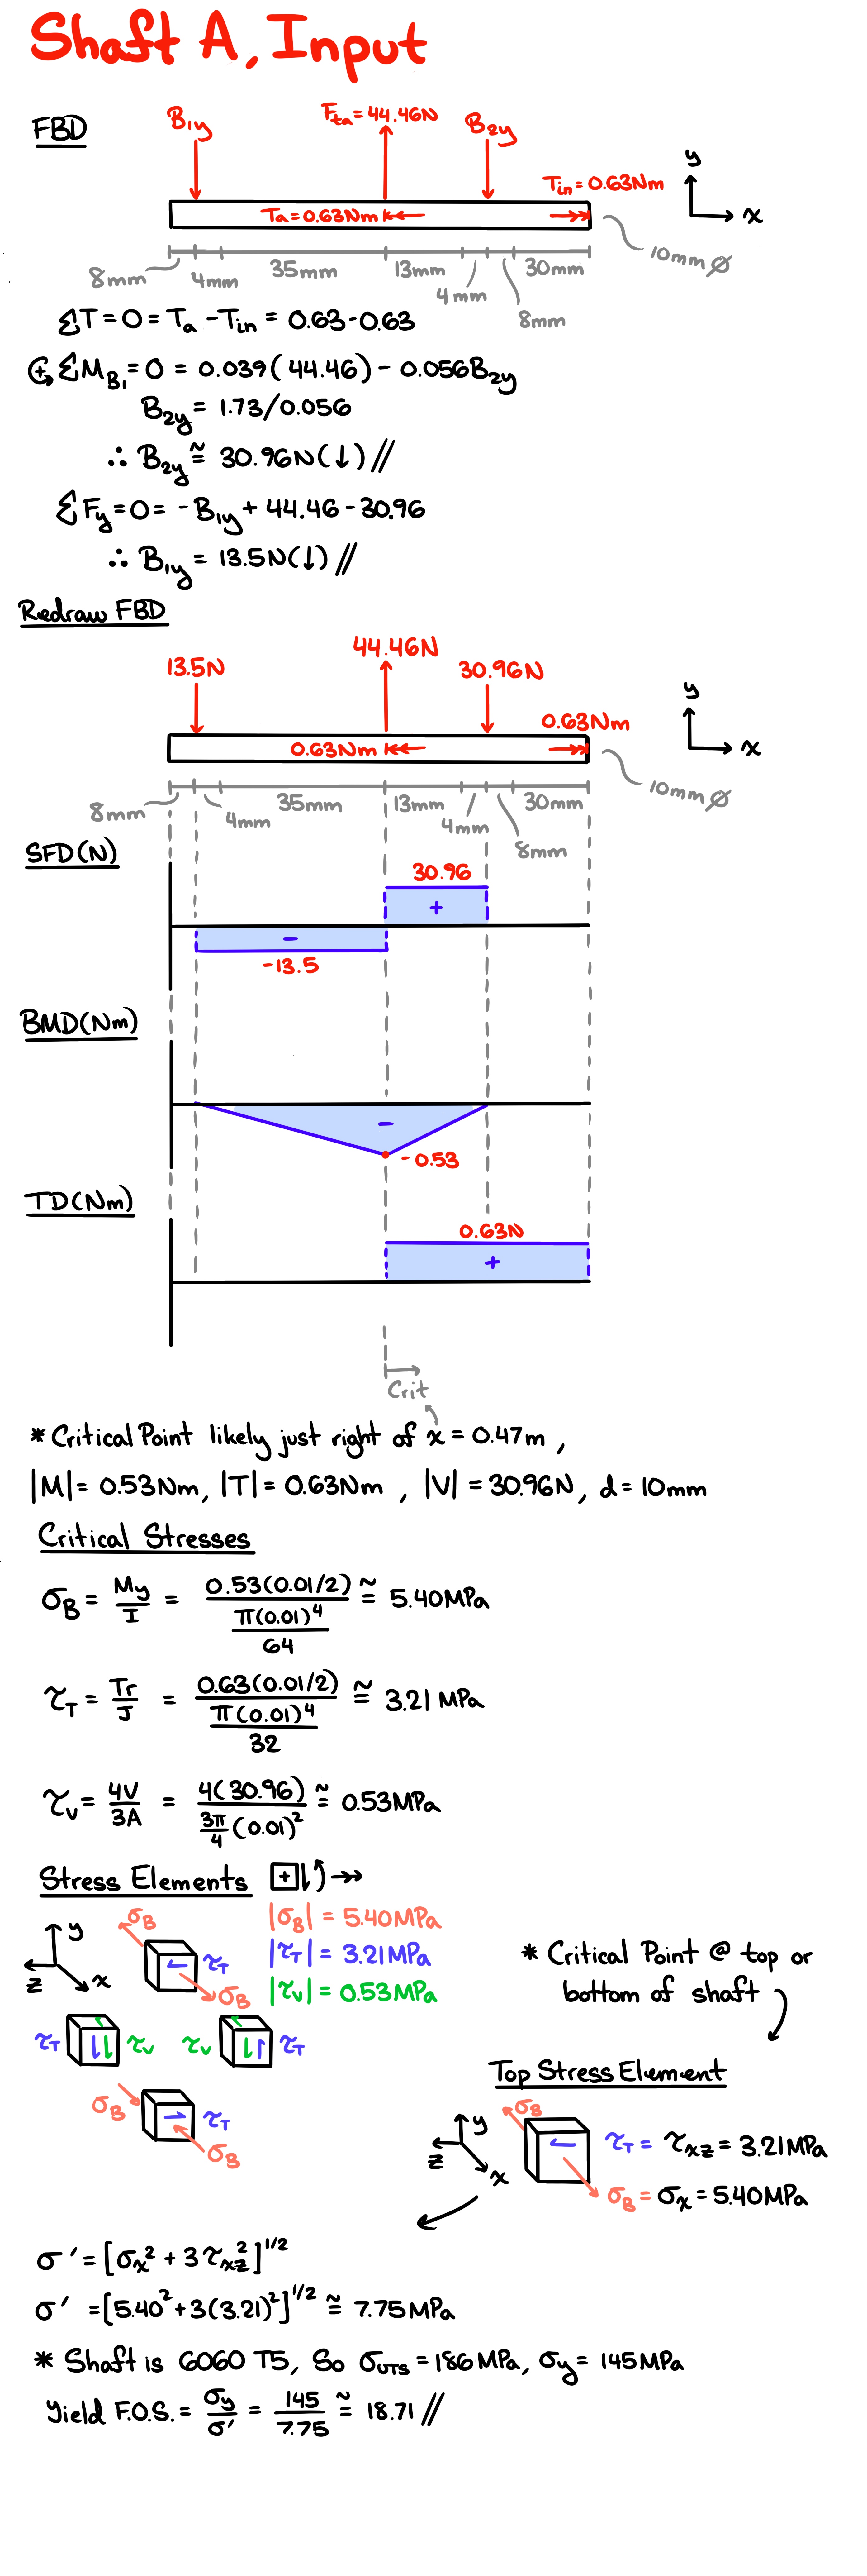 Shaft A, Input
FBD
B1y
Fta = 44.46N
B2y
Tin = 0.63Nm
y
x
Ta = 0.63Nm
8mm
4mm
35mm
13mm
4mm
8mm
30mm
10mm Ø
ΣT = 0 = Ta - Tin = 0.63 - 0.63
ΣMB1 = 0 = 0.039(44.46) - 0.056B2y
B2y = 1.73/0.056
∴ B2y ≅ 30.96N(↓)//
ΣFy = 0 = -B1y + 44.46 - 30.96
∴ B1y = 13.5N(↓)//
Redraw FBD
13.5N
44.46N
30.96N
0.63Nm
y
x
0.63Nm
8mm
4mm
35mm
13mm
4mm
8mm
30mm
10mm Ø
SFD(N)
30.96
+
-
-13.5
BMD(Nm)
-
-0.53
TD(Nm)
0.63N
+
Crit
* Critical Point likely just right of x = 0.47m,
|M| = 0.53Nm, |T| = 0.63Nm, |V| = 30.96N, d = 10mm
Critical Stresses
σB = My/I = 0.53(0.01/2) / (π(0.01)^4/64) ≅ 5.40MPa
τT = Tr/J = 0.63(0.01/2) / (π(0.01)^4/32) ≅ 3.21 MPa
τV = 4V/3A = 4(30.96) / (3π/4 (0.01)^2) ≅ 0.53MPa
Stress Elements
+
|σB| = 5.40MPa
|τT| = 3.21MPa
|τV| = 0.53MPa
y
z
x
σB
τT
σB
τT
τV
τV
τT
σB
τT
σB
* Critical Point @ top or
bottom of shaft
Top Stress Element
y
z
x
σB
τT = τxz = 3.21MPa
σB = σx = 5.40MPa
σ' = [σx^2 + 3τxz^2]^1/2
σ' = [5.40^2 + 3(3.21)^2]^1/2 ≅ 7.75MPa
* Shaft is 6060 T5, So σUTS = 186MPa, σy = 145MPa
Yield F.O.S. = σy/σ' = 145/7.75 ≅ 18.71//